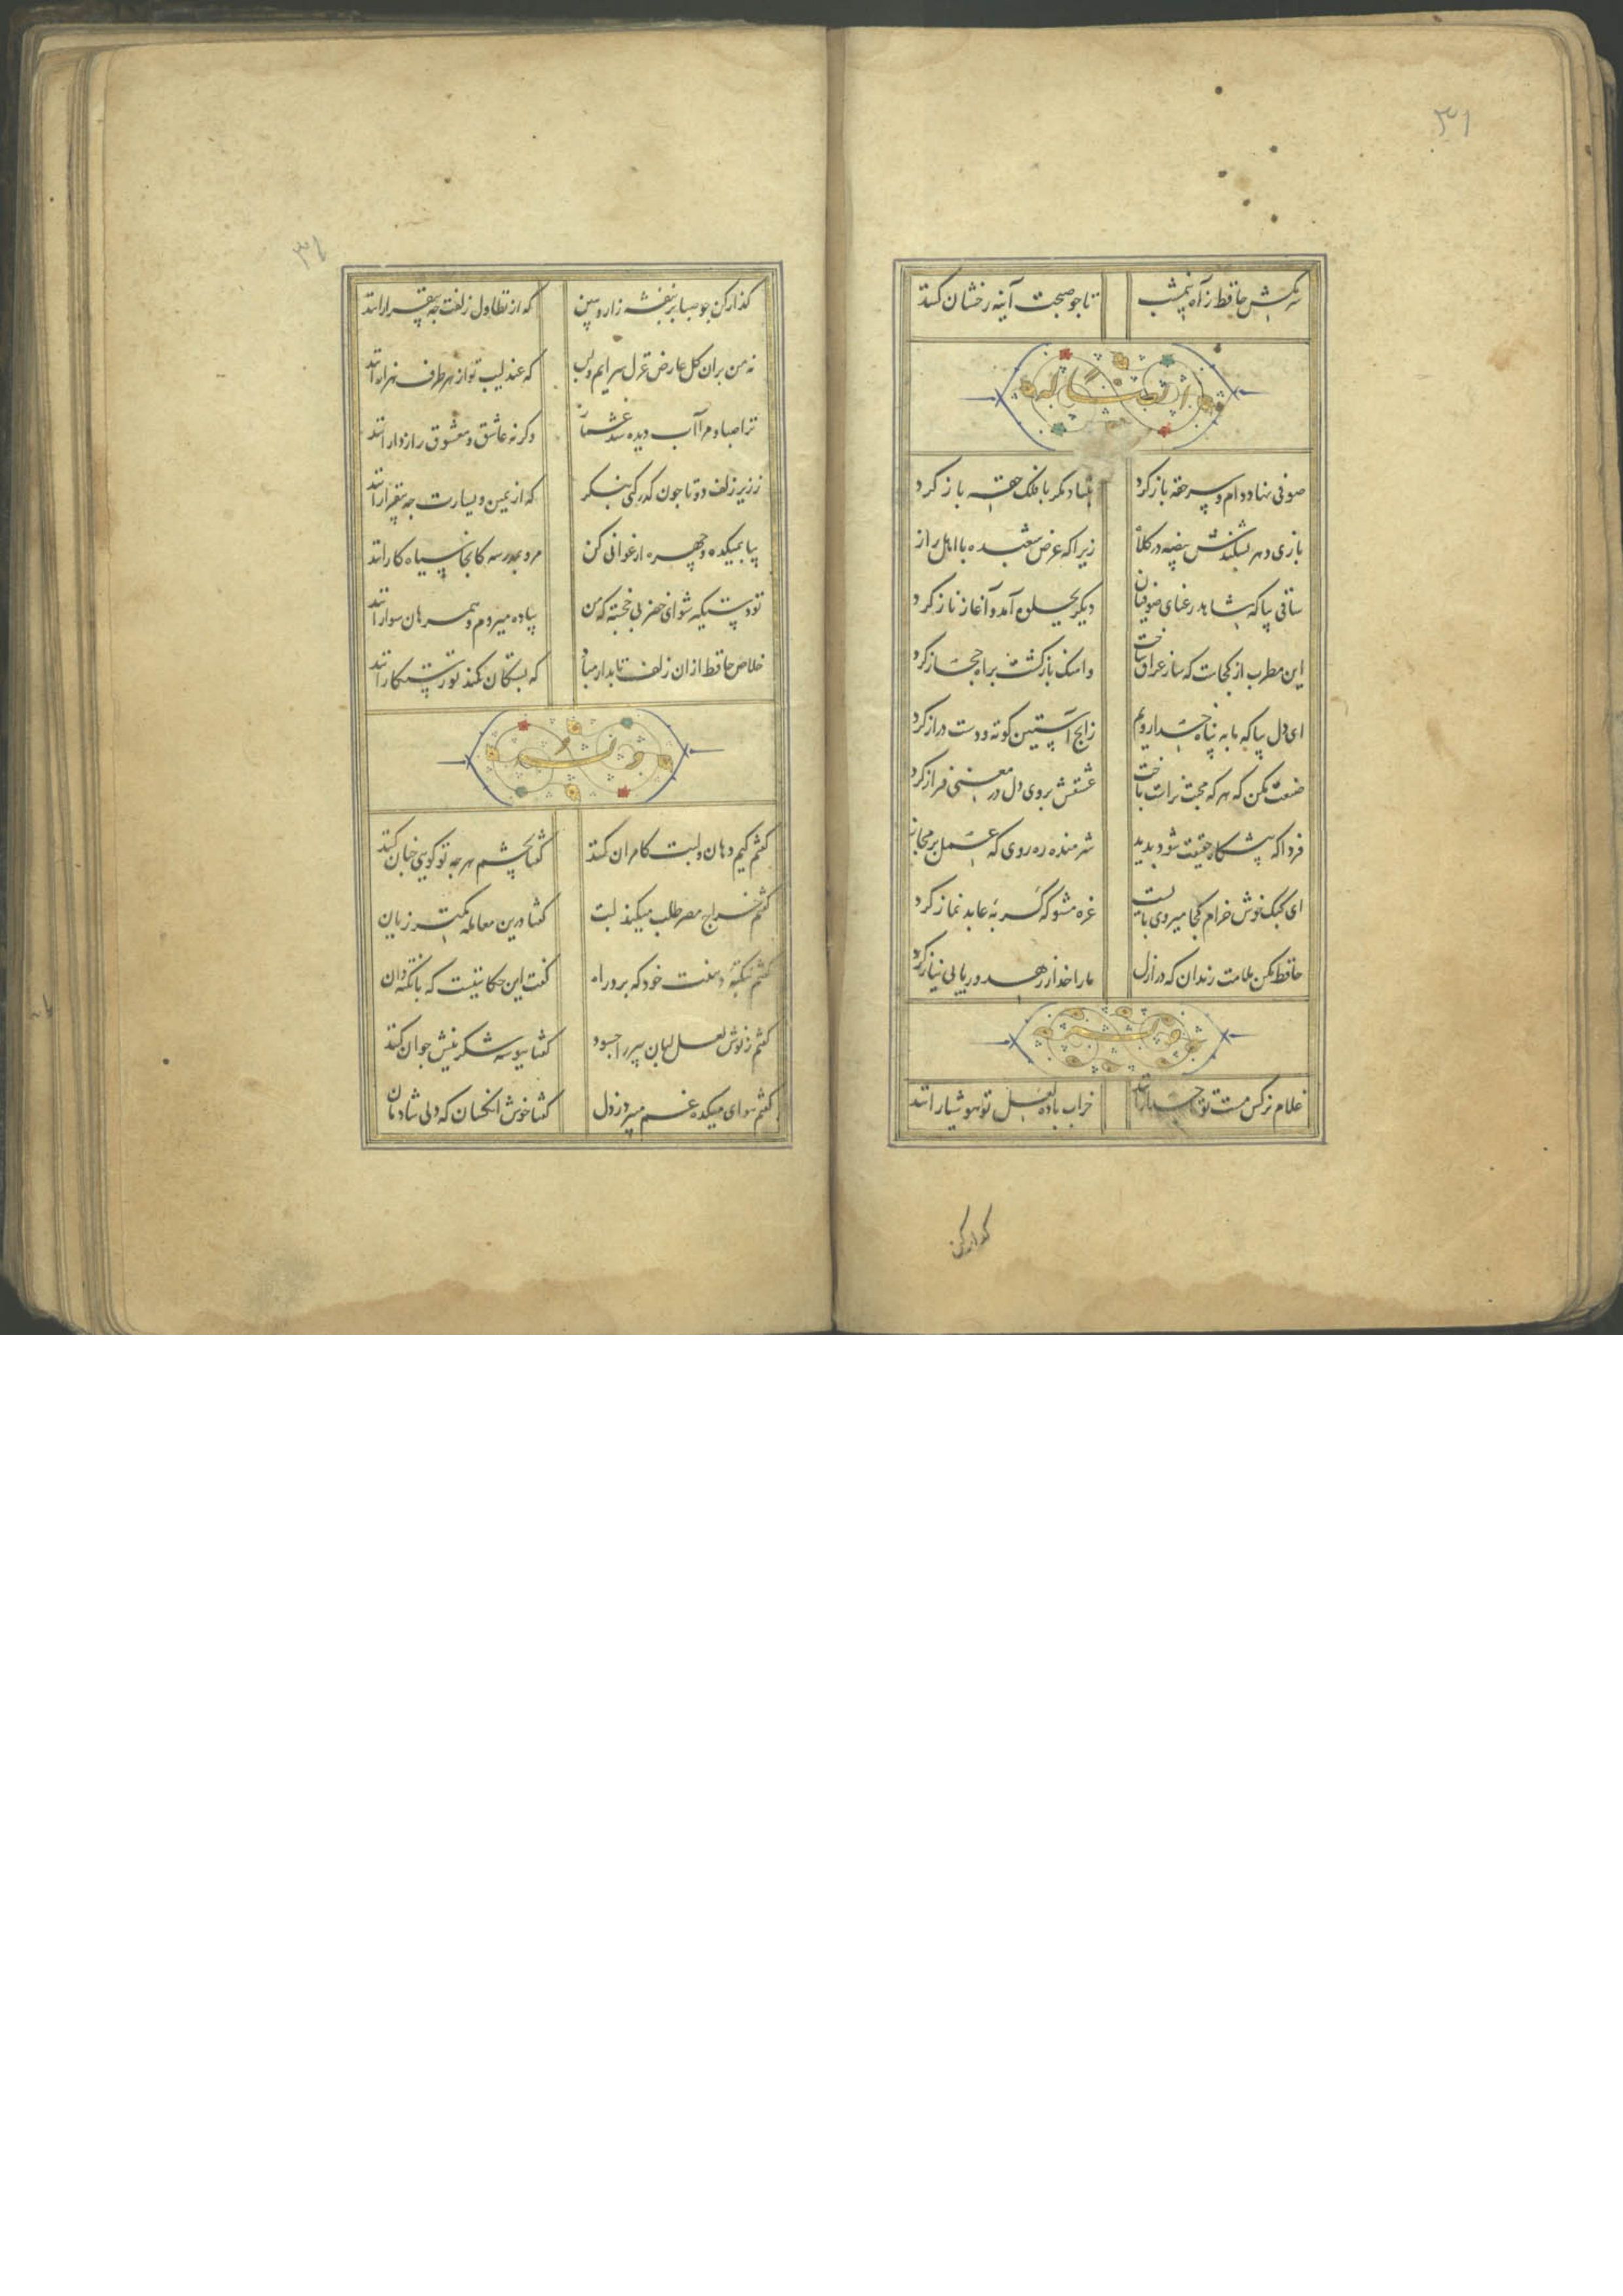 ۳۱
سرمکش حافظ ز آه نیمشب تا چو صبحت آینه رخشان کنند
ایضا له
صوفی نهاد دام و سر حقه باز کرد بنیاد مکر با فلک حقه باز کرد
بازی دهر بشکندش بیضه در کلاه زیرا که عرض شعبده با اهل راز
ساقی بیا که شاهد رعنای صوفیان دیکر بجلوه آمد و آغاز ناز کرد
این مطرب از کجاست که ساز عراق ساخت و اهنک بازکشت براه حجاز کرد
ای دل بیا که ما به پناه خدا رویم زانچ آستین کوته و دست دراز کرد
صنعت مکن که هر که محبت نه راست باخت عشقش بروی دل در معنی فراز کرد
فردا که پیشکاه حقیقت شود پدید شرمنده ره روی که عمل بر مجاز
ای کبک خوش خرام کجا میروی بایست غره مشو که کربهٔ عابد نماز کرد
حافظ مکن ملامت رندان که در ازل ما را خدا ز زهد و ریا بی نیاز کرد
وله
غلام نرکس مست تو تاجدارانند خراب بادهٔ لعل تو هوشیارانند
کذار کن
۳۲
کذار کن چو صبا بر بنفشه زار و ببین که از تطاول زلفت چه بیقرارانند
نه من بران کل عارض غزل سرایم و بس که عندلیب تو از هر طرف هزارانند
ترا صبا و مرا آب دیده شد غماز و کرنه عاشق و معشوق رازدارانند
ز زیر زلف دوتا چون کذر کنی بنکر که از یمین و یسارت چه بیقرارانند
بیا بمیکده و چهره ارغوانی کن مرو بمدرسه کانجا سیاه کارانند
تو دستکیر شو ای خضر پی خجسته که من پیاده میروم و همرهان سوارانند
خلاص حافظ ازان زلف تابدار مباد که بستکان کمند تو رستکارانند
وله
کفتم کیم دهان و لبت کامران کنند کفتا بچشم هر چه تو کویی چنان کنند
کفتم خراج مصر طلب میکند لبت کفتا درین معامله کمتر زیان
کفتم بنکتهٔ دهنت خود که برد راه کفت این حکایتیست که با نکته دان
کفتم ز نوش لعل لبان پیر را چه سود کفتا ببوسه شکرینش جوان کنند
کفتم هوای میکده غم میبرد ز دل کفتا خوش انکسان که دلی شادمان